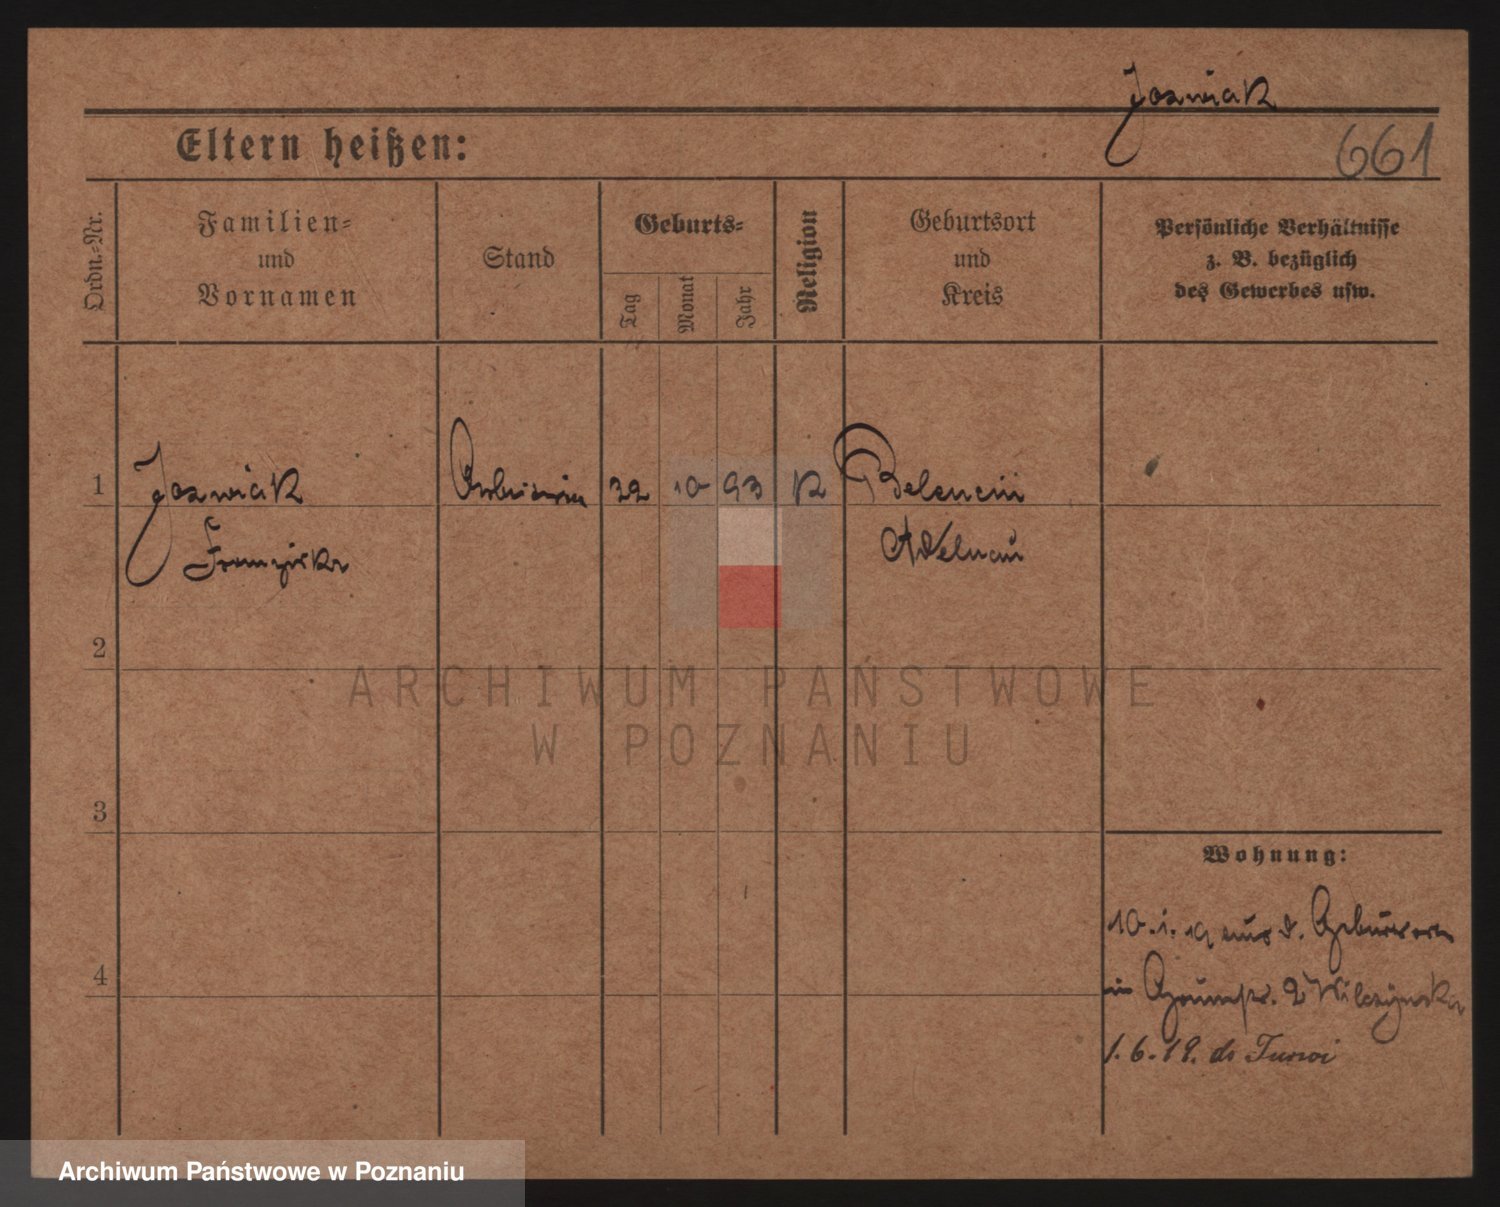 Jozwiak
661
Eltern heißen:
Ordn.-Nr.
Familien-
und
Vornamen
Stand
Geburts-
Tag
Monat
Jahr
Religion
Geburtsort
und
Kreis
Persönliche Verhältnisse
z. B. bezüglich
des Gewerbes usw.
1 Jozwiak Arbeiterin 22 10 93 K
Franziska Adelnau
2
ARCHIWUM PAŃSTWOWE
W POZNANIU
3
Wohnung:
10.1.19 aus d. Geburtsort
4
in 2 Wilczynska
1.6.19.
Archiwum Państwowe w Poznaniu